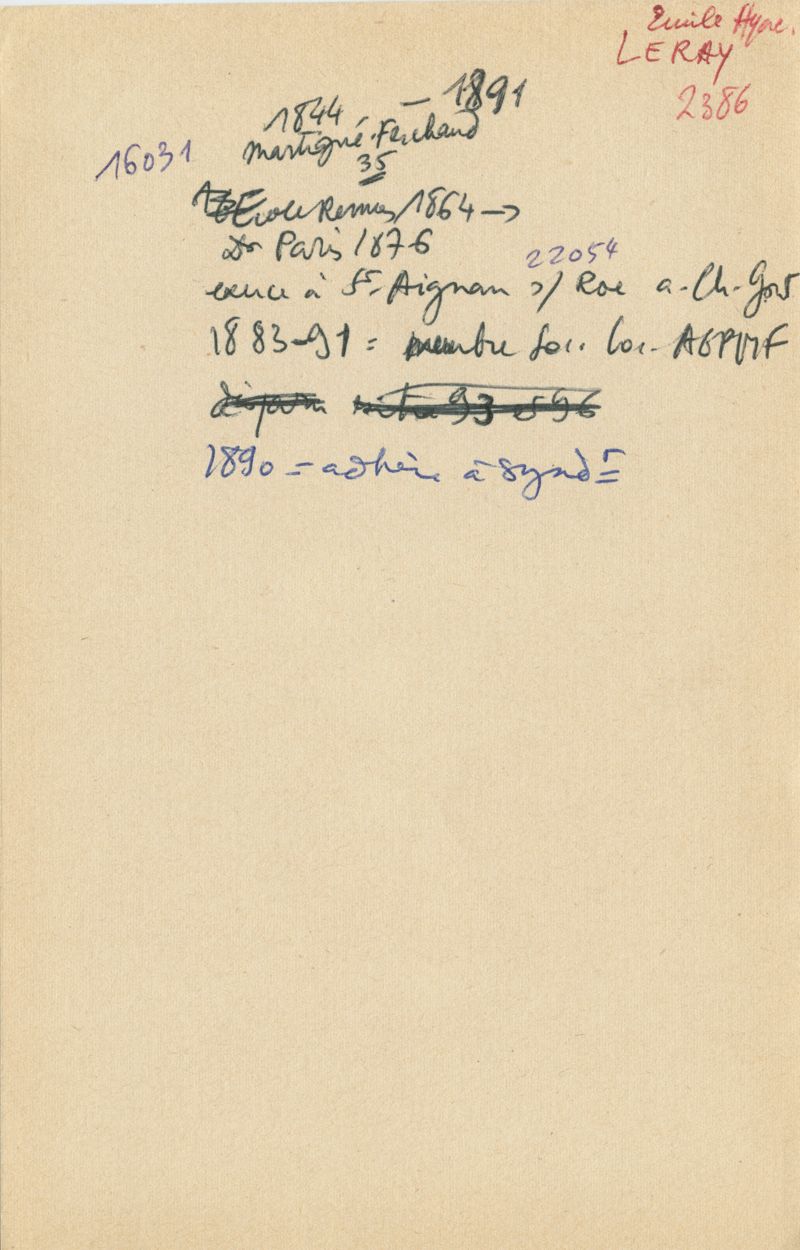 Emile Hyac.
LERAY
2386
1844 – 1891
Martigné-Ferchaud
35
16031
Ecole Rennes 1864 →
Dr Paris 1876
22054
exerce à St-Aignan s/ Roe a. Ch-Gont
1883-91 = membre Soc. loc. AGPMF
disparu entre 93 et 96
1890 = adhère à Synd